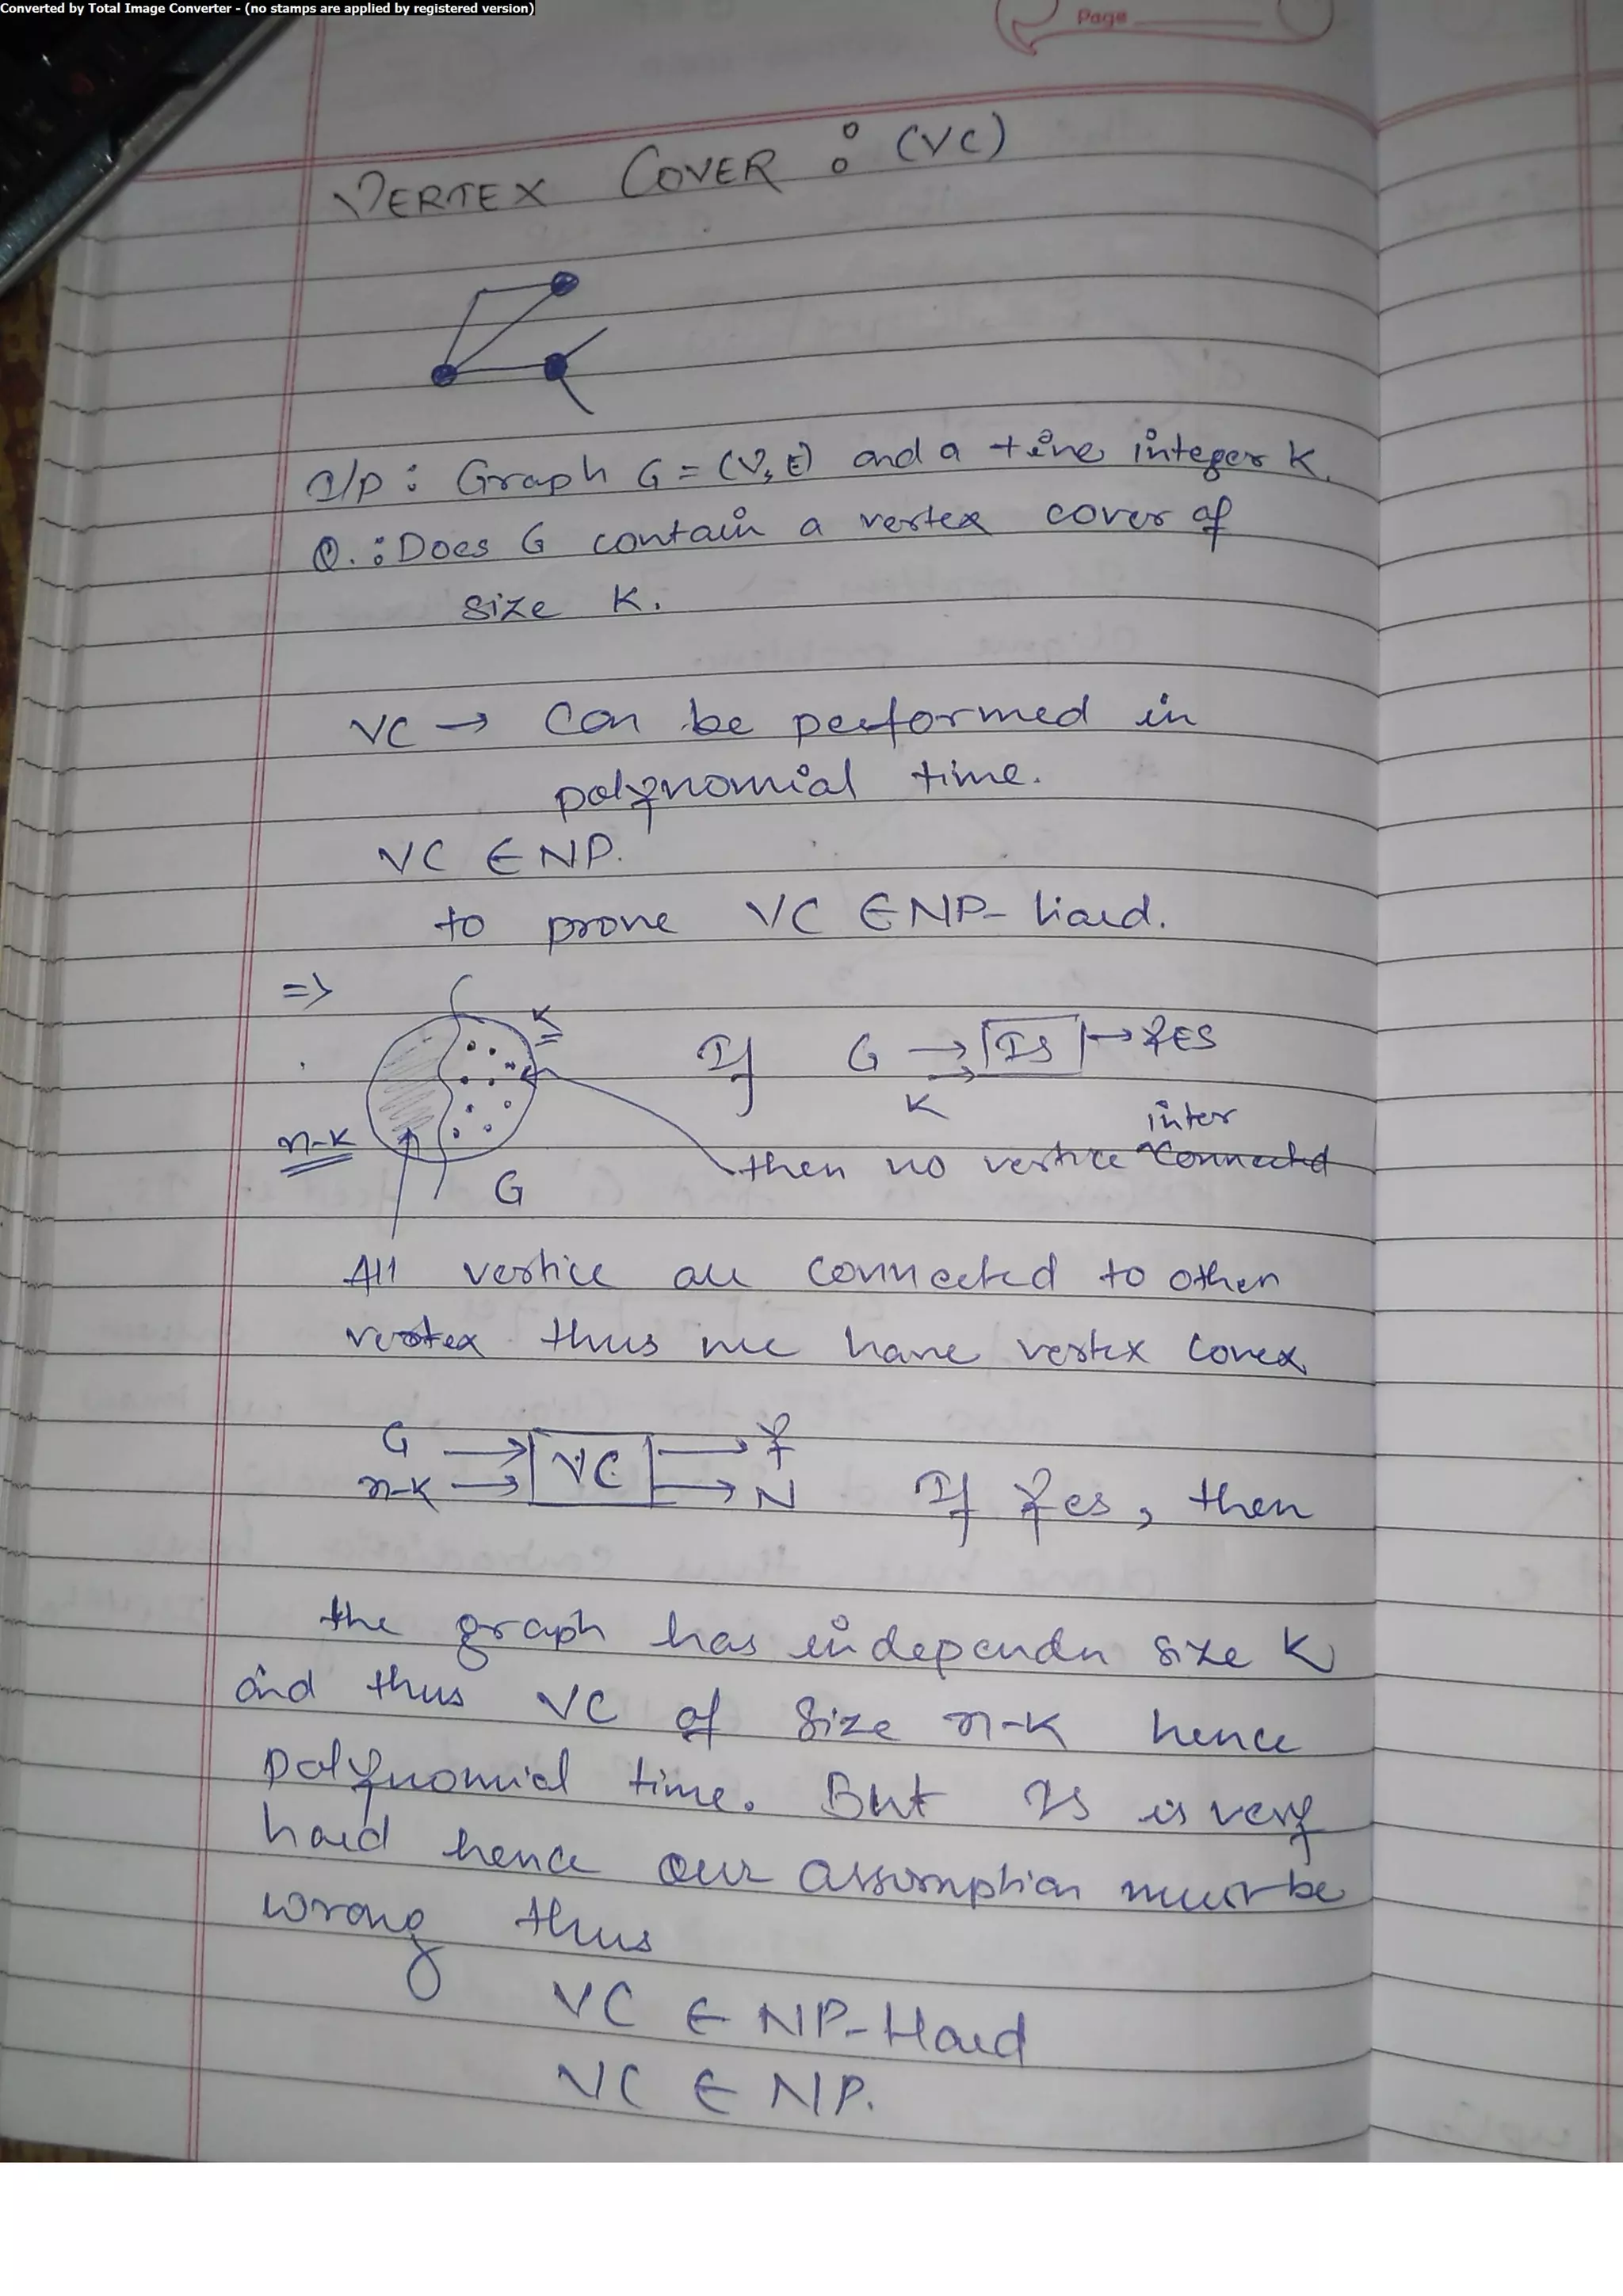 Converted by Total Image Converter - (no stamps are applied by registered version)
Page
VERTEX COVER : (VC)
I/P : Graph G = (V, E) and a +ive integer K.
Q. : Does G contain a vertex cover of
size K.
VC → Can be performed in
polynomial time.
VC ∈ NP.
to prove VC ∈ NP-hard.
=>
K
If G → IS → YES
K
n-K
G
inter
then no vertice connected
All vertice are connected to other
vertex thus we have vertex cover
G → VC → Y
n-K → → N If Yes, then
the graph has independn size K
and thus VC of size n-K hence
polynomial time. But IS is very
hard hence our assumption must be
wrong thus
VC ∈ NP-Hard
VC ∈ NP.